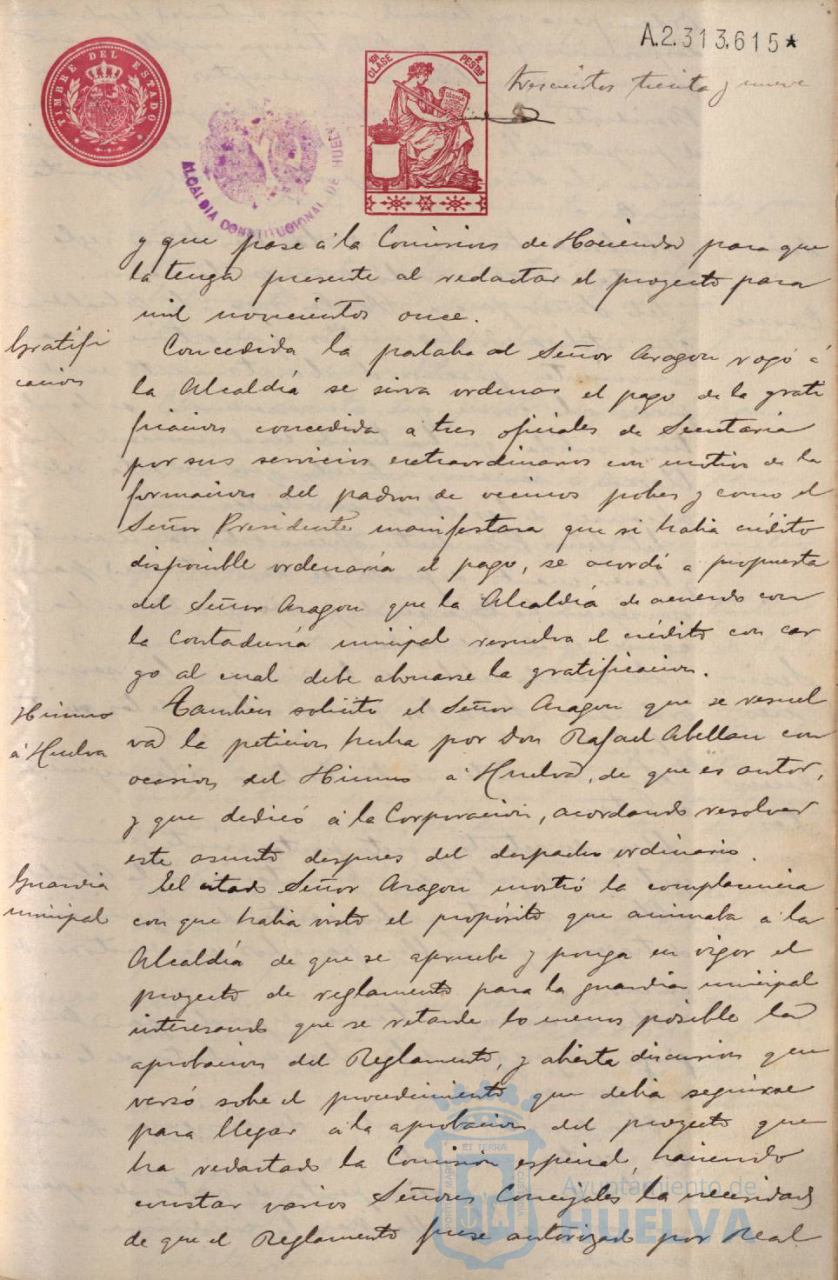 A.2.313.615*
TIMBRE DEL ESTADO
11ª CLASE
PESETAS
ALCALDIA CONSTITUCIONAL DE HUELVA
trescientos treinta y nueve
y que pase á la Comision de Hacienda para que
la tenga presente al redactar el proyecto para
mil novecientos once.
Gratifi
cacion
Concedida la palabra al Señor Aragon rogó á
la Alcaldía se sirva ordenar el pago de la grati
ficacion concedida a tres oficiales de Secretaría
por sus servicios extraordinarios con motivo de la
formacion del padron de vecinos pobres y como el
Señor Presidente manifestara que si habia crédito
disponible ordenaría el pago, se acordó a propuesta
del Señor Aragon que la Alcaldía de acuerdo con
la Contaduría municipal resuelva el crédito con car
go al cual debe abonarse la gratificacion.
Himno
á Huelva
Tambien solicitó el Señor Aragon que se resuel
va la peticion hecha por Don Rafael Abellan con
ocasion del Himno á Huelva, de que es autor,
y que dedicó á la Corporacion, acordando resolver
este asunto despues del despacho ordinario.
Guardia
municipal
El citado Señor Aragon mostró la complacencia
con que habia visto el propósito que animaba a la
Alcaldía de que se apruebe y ponga en vigor el
proyecto de reglamento para la guardia municipal
interesando que se retarde lo menos posible la
aprobacion del Reglamento, y abierta discusion que
versó sobre el procedimiento que debia seguirse
para llegar á la aprobacion del proyecto que
ha redactado la Comisión especial, haciendo
constar varios Señores Concejales la necesidad
de que el Reglamento fuese autorizado por Real
Ayuntamiento de
HUELVA